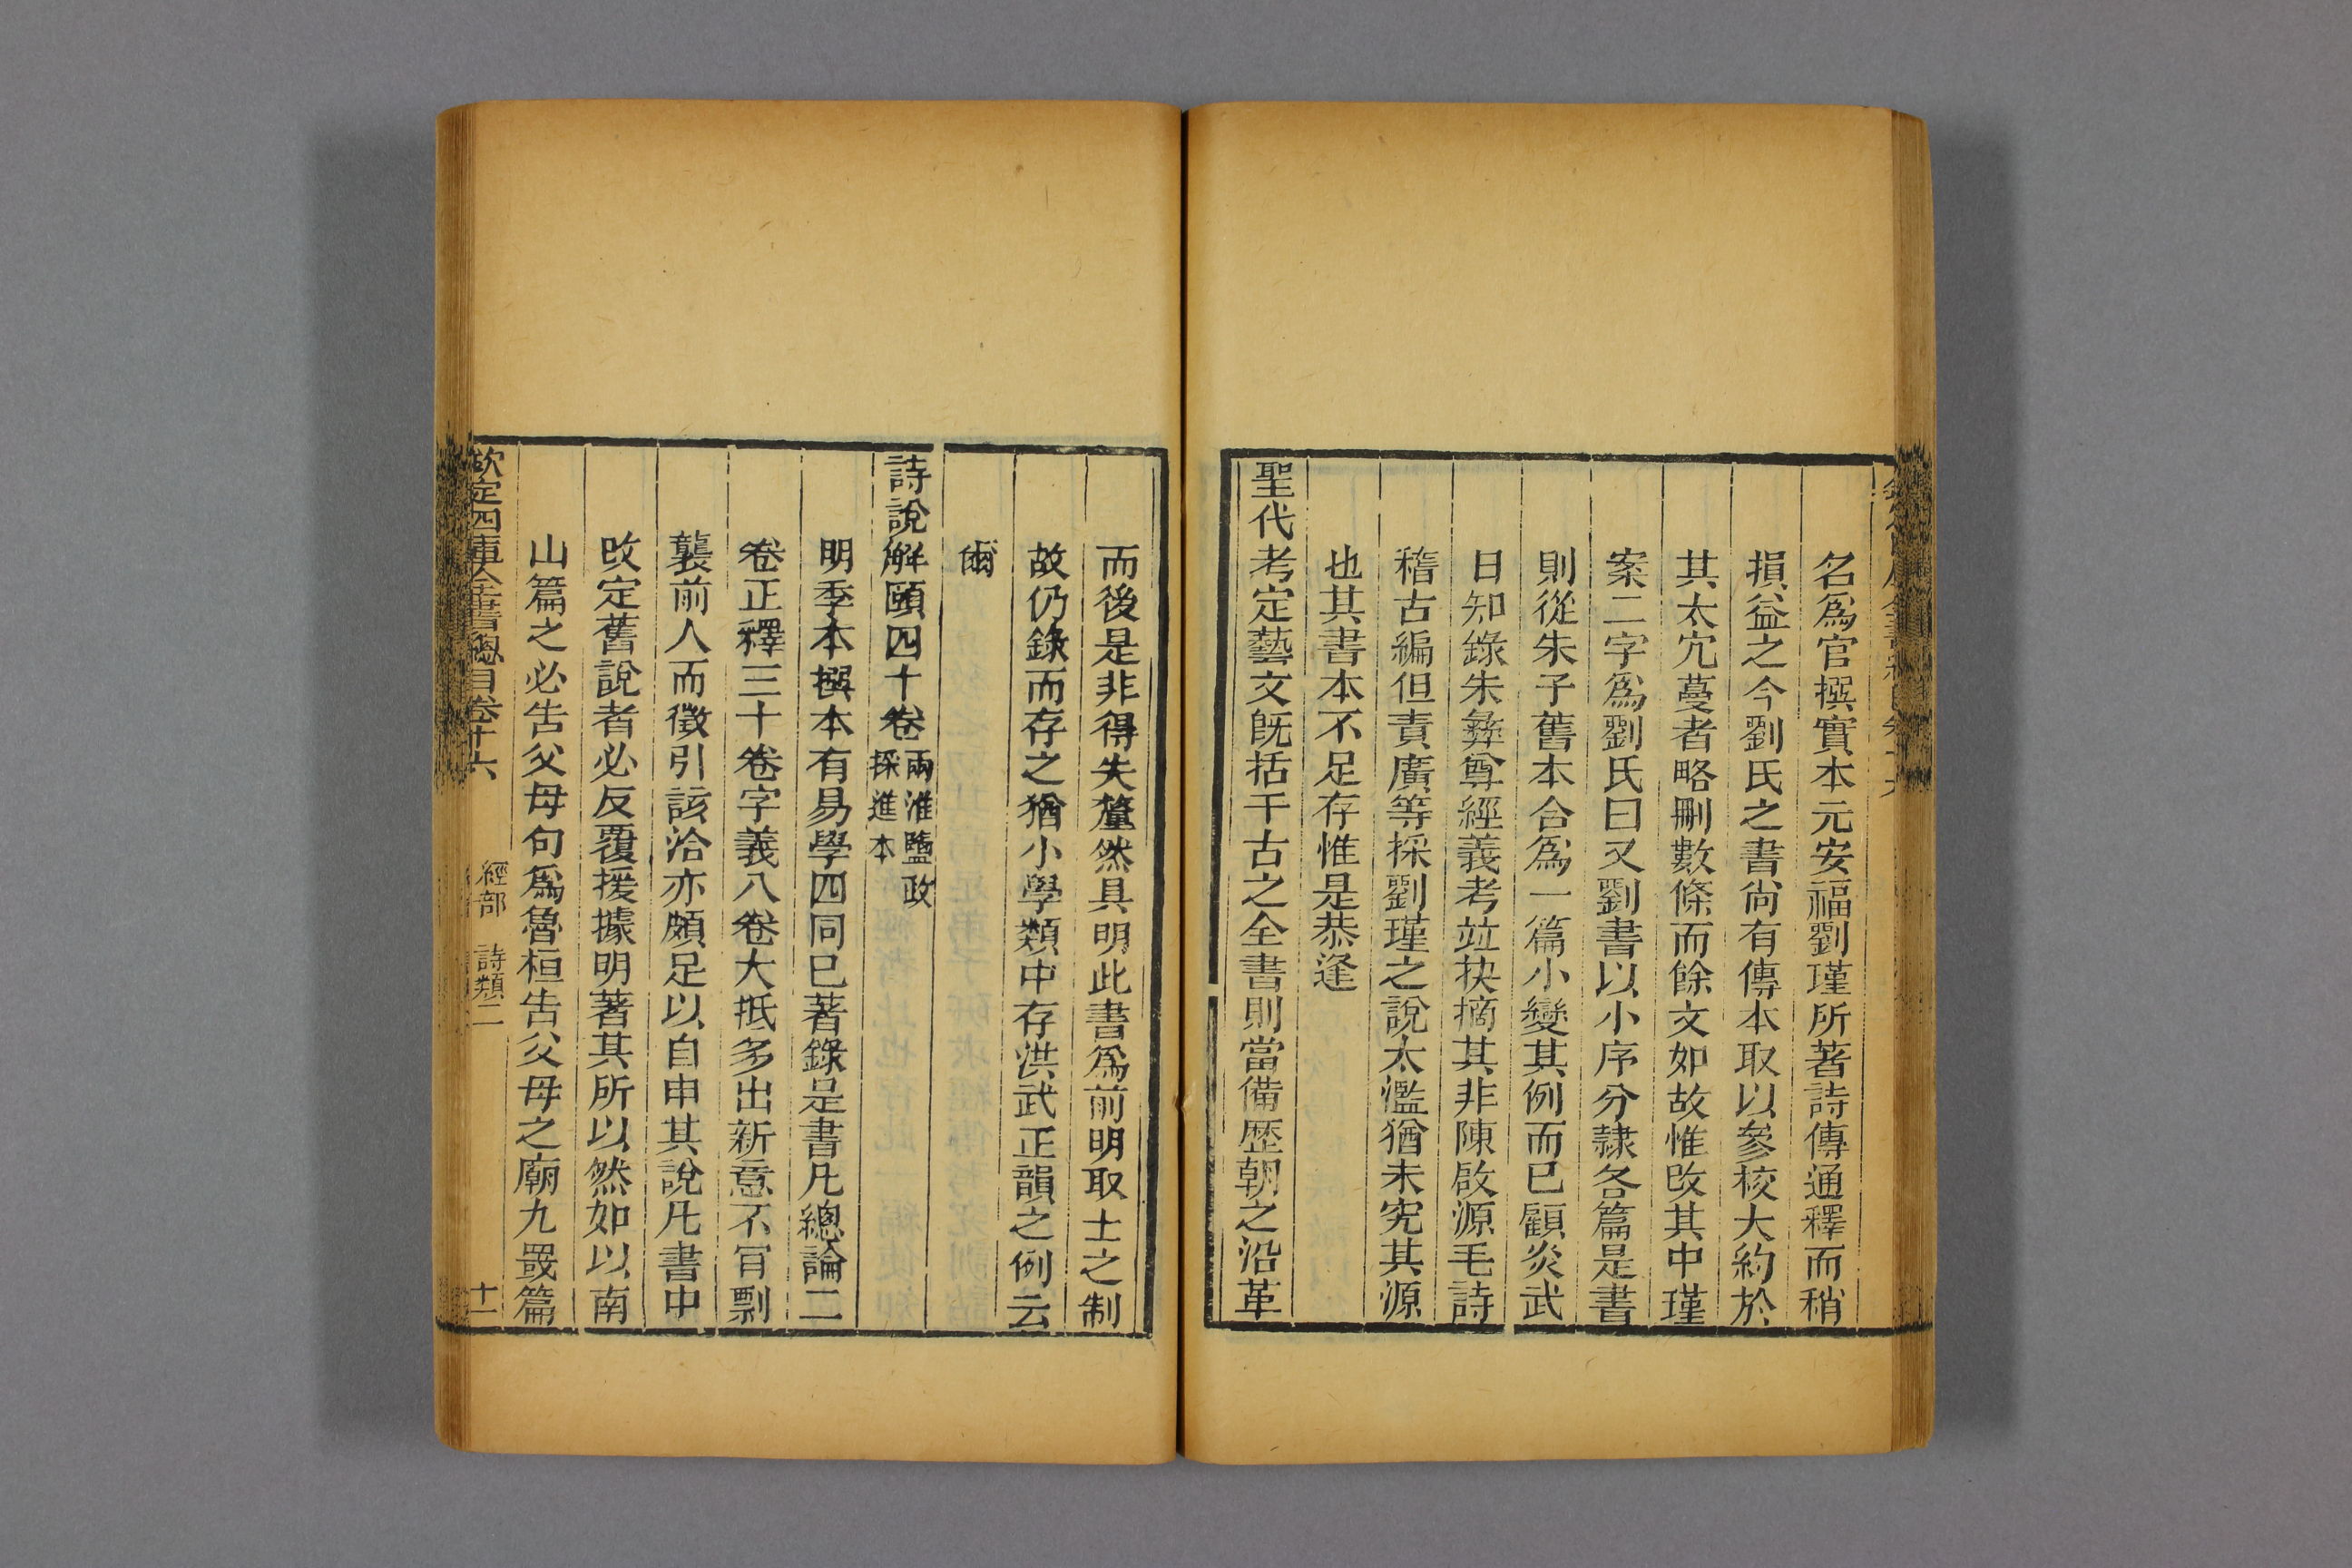 名爲官撰實本元安福劉瑾所著詩傳通釋而稍
損益之今劉氏之書尙有傳本取以參校大約於
其太宂蔓者略刪數條而餘文如故惟改其中瑾
案二字爲劉氏曰又劉書以小序分隷各篇是書
則從朱子舊本合爲一篇小變其例而已顧炎武
日知錄朱彝尊經義考竝抉摘其非陳啟源毛詩
稽古編但責廣等採劉瑾之說太濫猶未究其源
也其書本不足存惟是恭逢
聖代考定藝文旣括千古之全書則當備歷朝之沿革
而後是非得失釐然具明此書爲前明取士之制
故仍錄而存之猶小學類中存洪武正韻之例云
爾
詩說解頤四十卷兩淮鹽政
採進本
明季本撰本有易學四同已著錄是書凡總論二
卷正釋三十卷字義八卷大抵多出新意不肯剽
襲前人而徵引該洽亦頗足以自申其說凡書中
改定舊說者必反覆援據明著其所以然如以南
山篇之必告父母句爲魯桓告父母之廟九罭篇
欽定四庫全書總目卷十六 經部 詩類二 十一